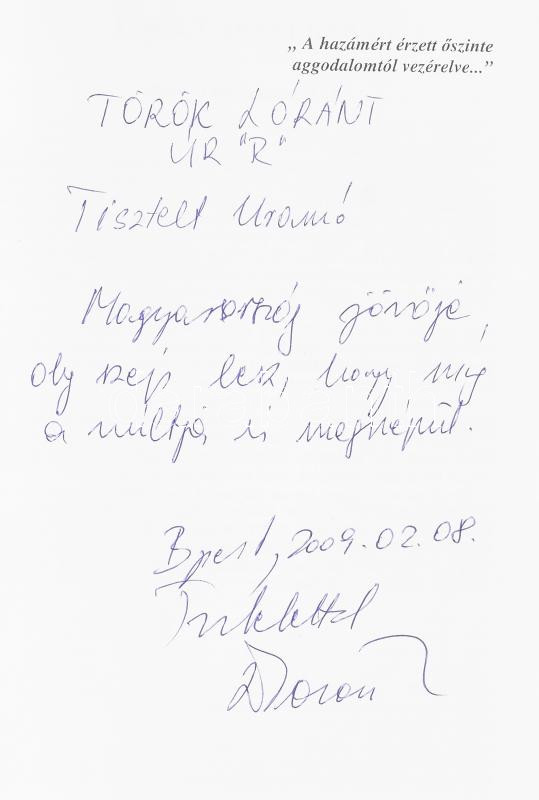 „ A hazámért érzett őszinte
aggodalomtól vezérelve...”
TÖRÖK LÓRÁNT
ÚR "R"
Tisztelt Uram!
Magyarország jövője,
oly szép lesz, hogy még
a múltja is megszépül.
Bpest, 2009.02.08.
Tisztelettel